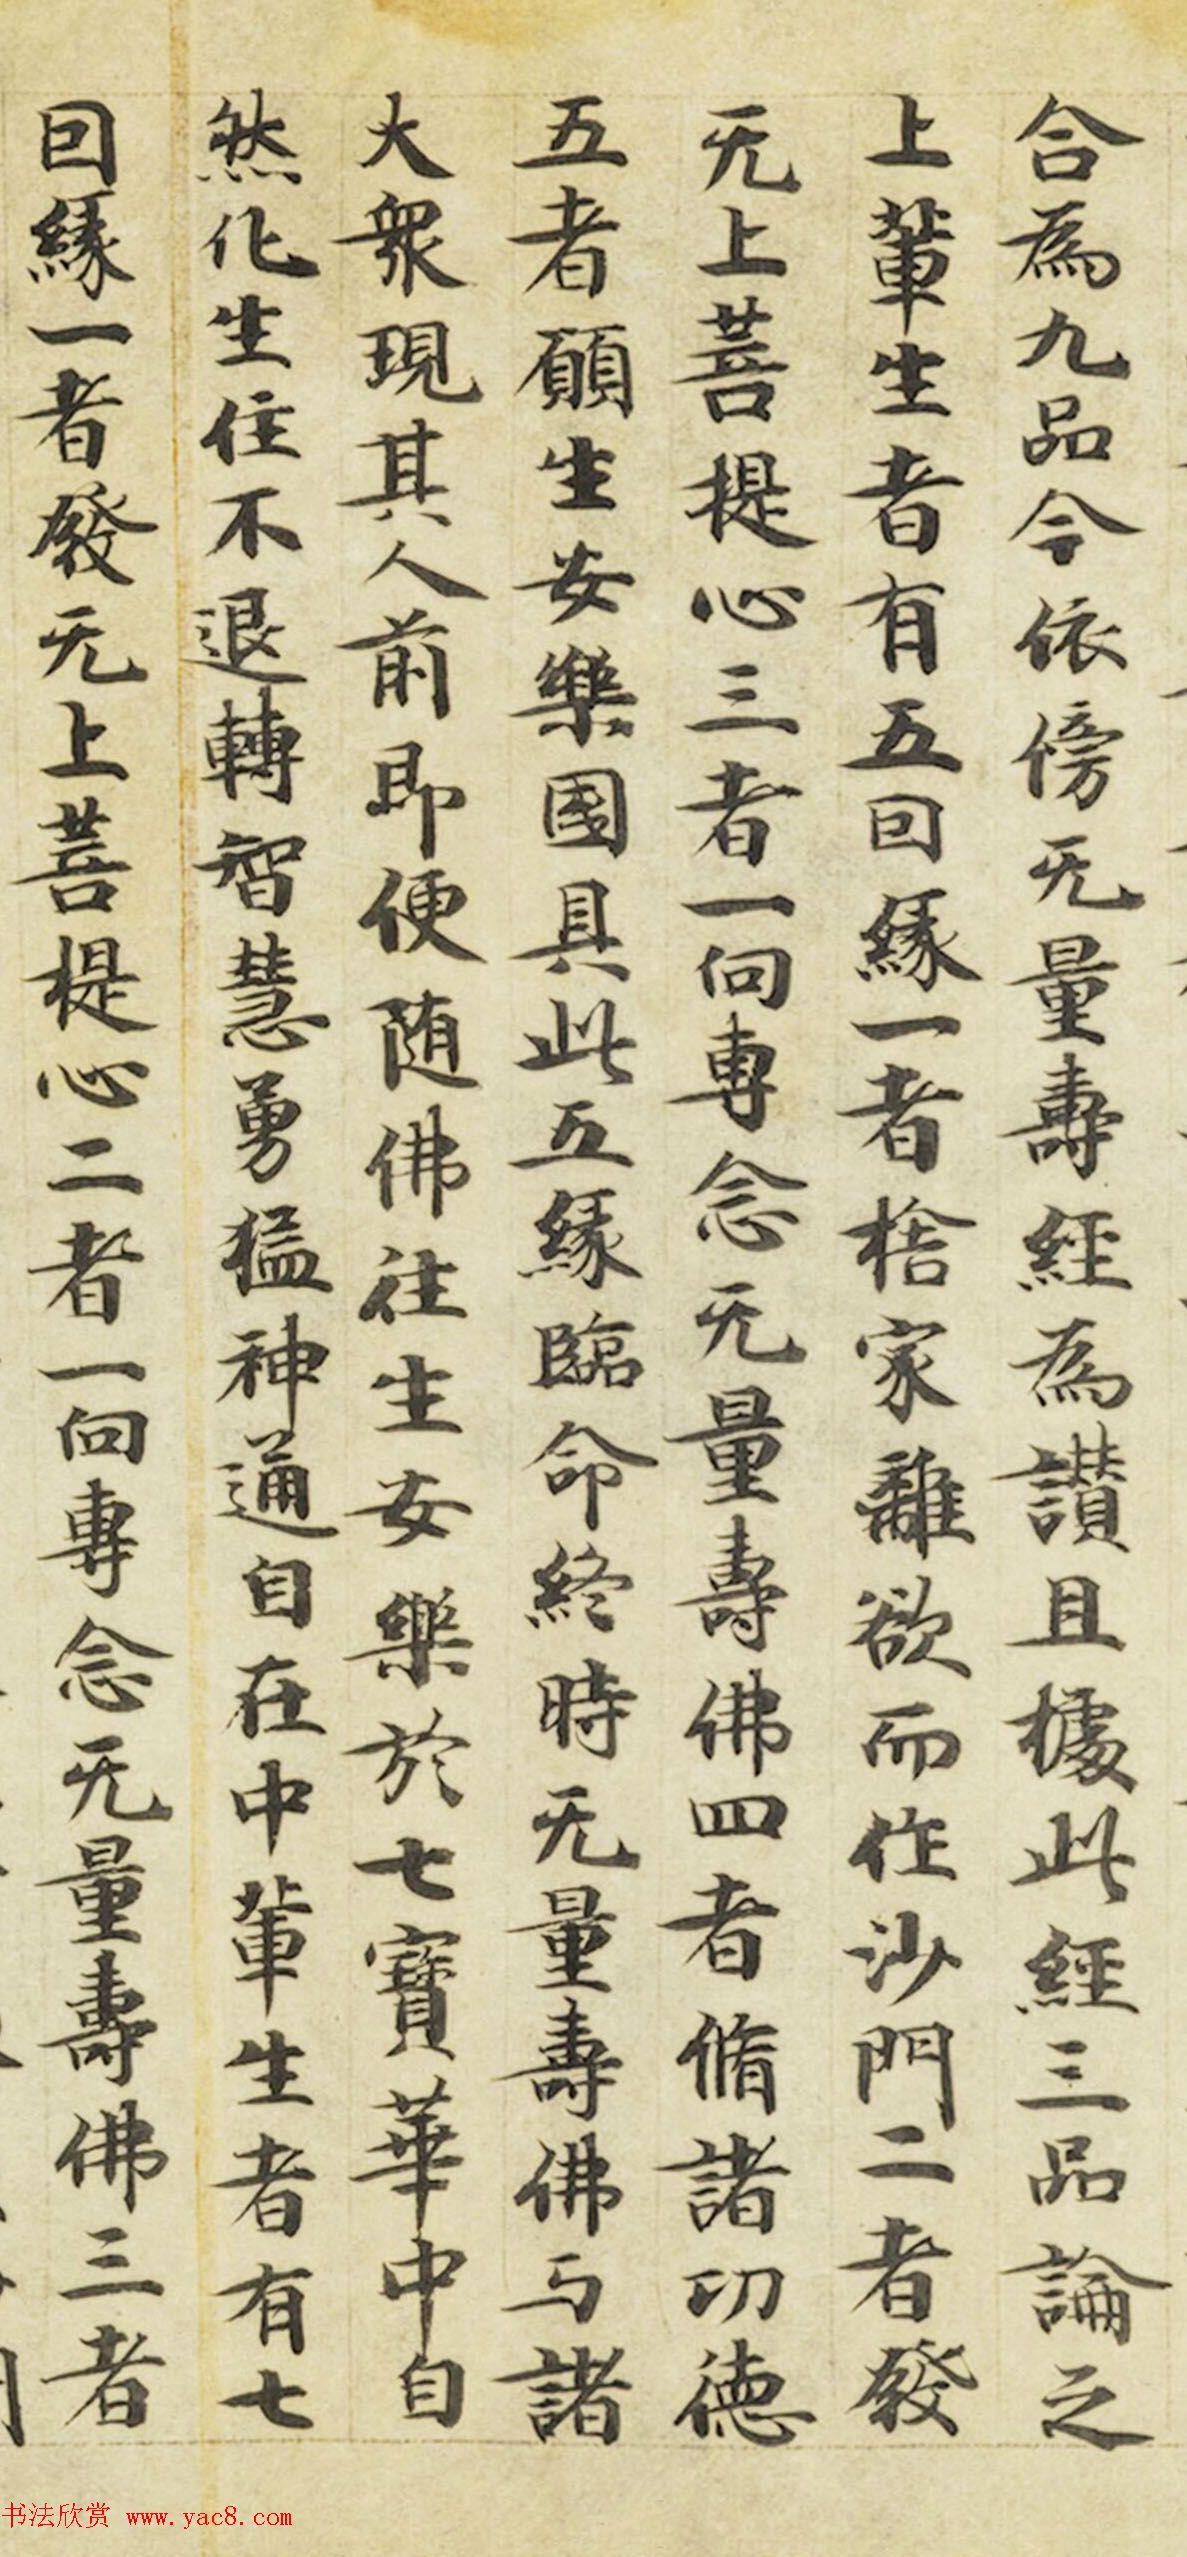 合為九品今依傍无量壽經為讃且據此經三品論之
上輩生者有五因緣一者捨家離欲而作沙門二者發
无上菩提心三者一向專念无量壽佛四者脩諸功德
五者願生安樂國具此五緣臨命終時无量壽佛与諸
大衆現其人前即便随佛往生安樂於七寶華中自
然化生住不退轉智慧勇猛神通自在中輩生者有七
因緣一者發无上菩提心二者一向專念无量壽佛三者
书法欣赏 www.yac8.com